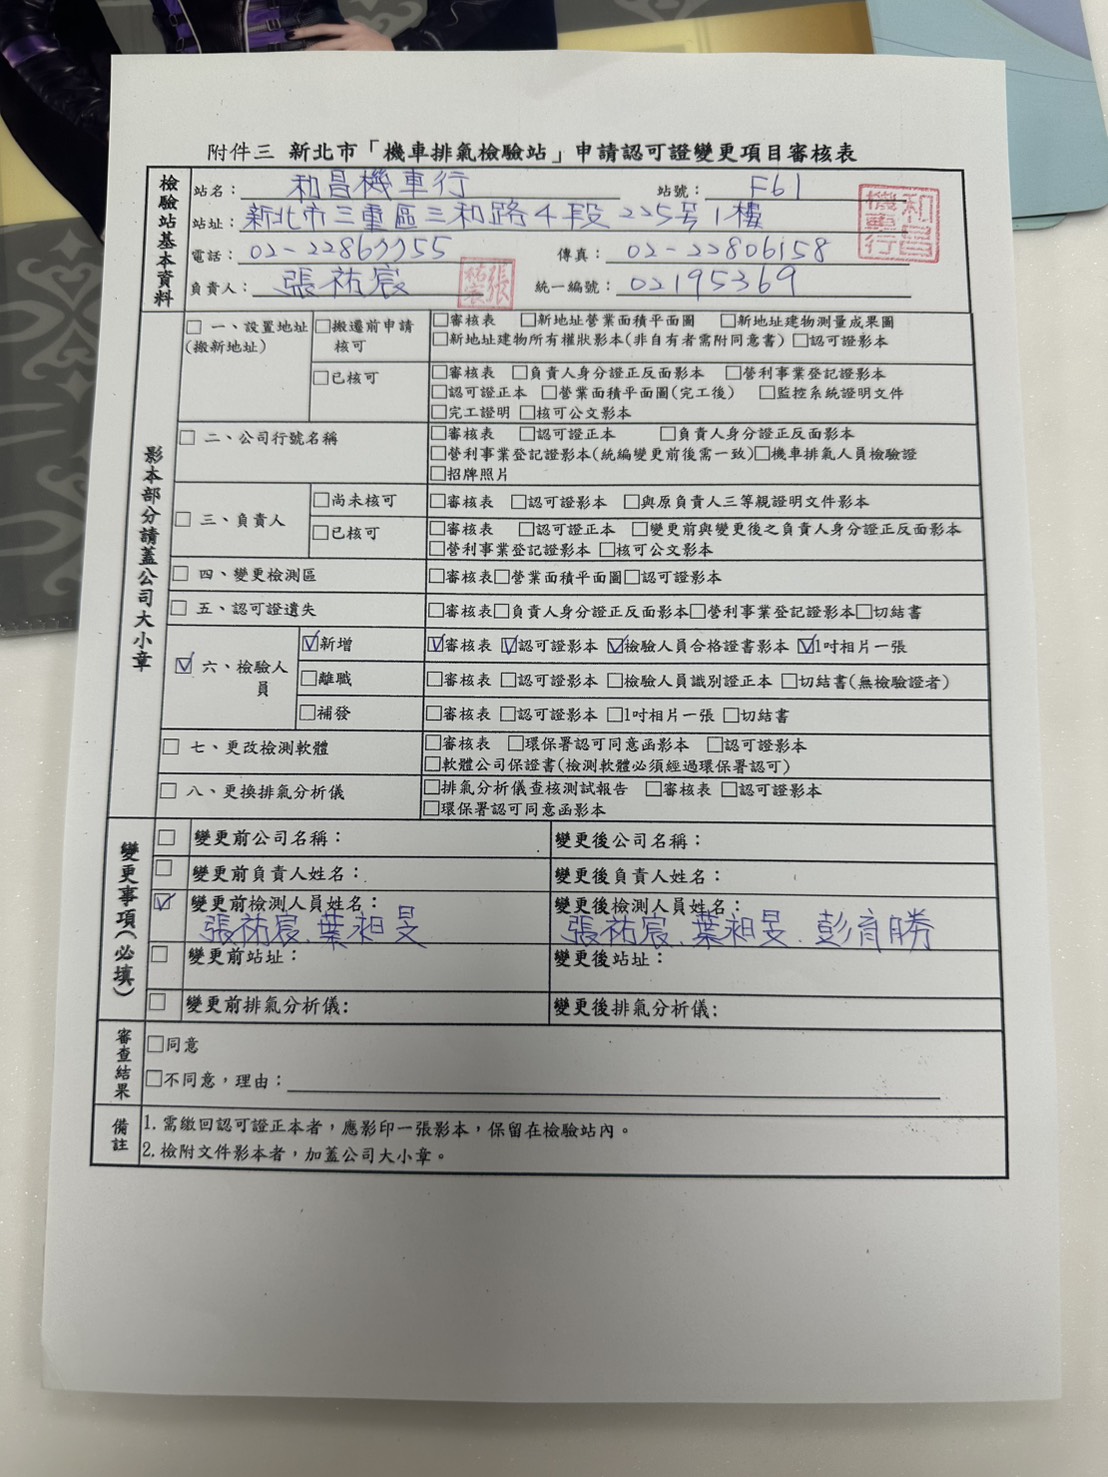 附件三 新北市「機車排氣檢驗站」申請認可證變更項目審核表
檢驗站基本資料
站名：和昌機車行 站號：F61
站址：新北市三重區三和路4段225号1樓
電話：02-22867755 傳真：02-22806158
負責人：張祐宸 統一編號：02195369
和昌機車行
張祐宸
影本部分請蓋公司大小章
□ 一、設置地址(搬新地址)
□搬遷前申請核可
□審核表 □新地址營業面積平面圖 □新地址建物測量成果圖
□新地址建物所有權狀影本(非自有者需附同意書) □認可證影本
□已核可
□審核表 □負責人身分證正反面影本 □營利事業登記證影本
□認可證正本 □營業面積平面圖(完工後) □監控系統證明文件
□完工證明 □核可公文影本
□ 二、公司行號名稱
□審核表 □認可證正本 □負責人身分證正反面影本
□營利事業登記證影本(統編變更前後需一致)□機車排氣人員檢驗證
□招牌照片
□ 三、負責人
□尚未核可 □審核表 □認可證影本 □與原負責人三等親證明文件影本
□已核可
□審核表 □認可證正本 □變更前與變更後之負責人身分證正反面影本
□營利事業登記證影本 □核可公文影本
□ 四、變更檢測區 □審核表□營業面積平面圖□認可證影本
□ 五、認可證遺失 □審核表□負責人身分證正反面影本□營利事業登記證影本□切結書
☑ 六、檢驗人員
☑新增 ☑審核表 ☑認可證影本 ☑檢驗人員合格證書影本 ☑1吋相片一張
□離職 □審核表 □認可證影本 □檢驗人員識別證正本 □切結書(無檢驗證者)
□補發 □審核表 □認可證影本 □1吋相片一張 □切結書
□ 七、更改檢測軟體
□審核表 □環保署認可同意函影本 □認可證影本
□軟體公司保證書(檢測軟體必須經過環保署認可)
□ 八、更換排氣分析儀
□排氣分析儀查核測試報告 □審核表 □認可證影本
□環保署認可同意函影本
變更事項(必填)
□ 變更前公司名稱： 變更後公司名稱：
□ 變更前負責人姓名： 變更後負責人姓名：
☑ 變更前檢測人員姓名： 變更後檢測人員姓名：
張祐宸、葉昶旻 張祐宸、葉昶旻、彭育勝
□ 變更前站址： 變更後站址：
□ 變更前排氣分析儀: 變更後排氣分析儀:
審查結果
□同意
□不同意，理由：
備註
1. 需繳回認可證正本者，應影印一張影本，保留在檢驗站內。
2. 檢附文件影本者，加蓋公司大小章。